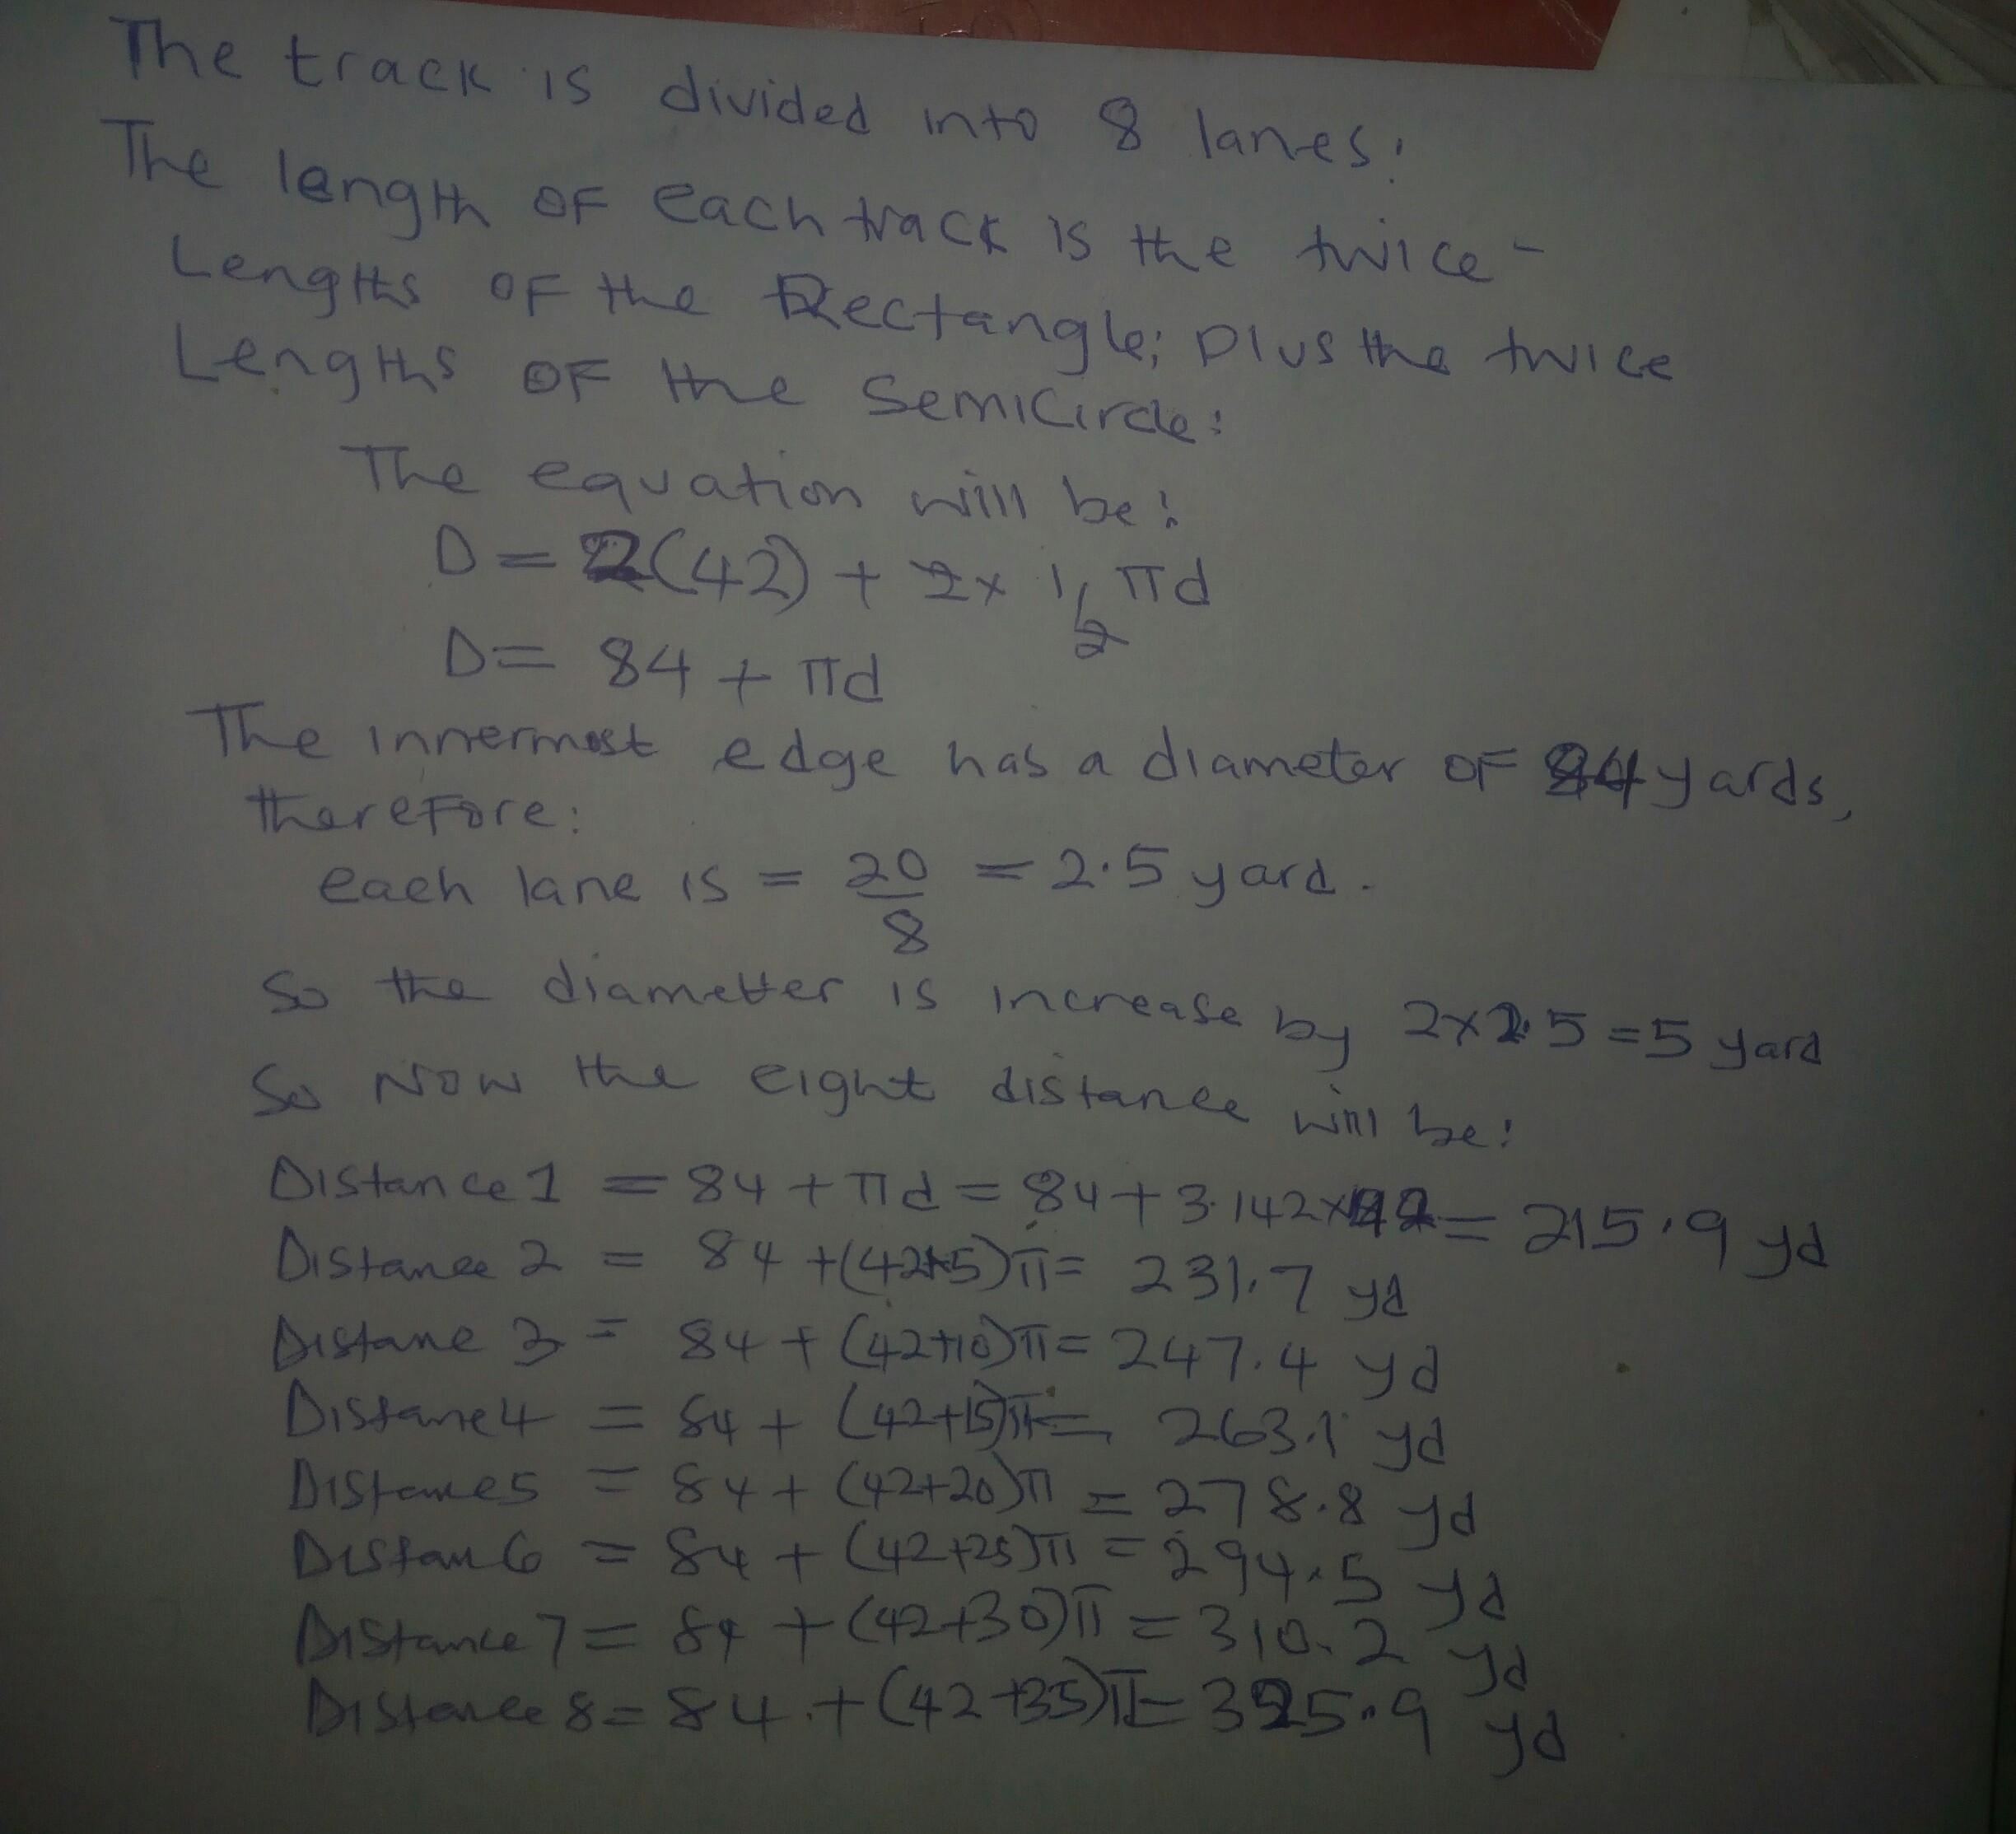 The track is divided into 8 lanes:
The length of each track is the twice -
Lengths of the Rectangle; plus the twice
Lengths of the Semicircle:
The equation will be:
D = 2(42) + 2 x 1/2 πd
D = 84 + πd
The innermost edge has a diameter of yards,
therefore:
each lane is = 20/8 = 2.5 yard.
So the diametter is increase by 2x2.5 = 5 yard
So Now the eight distance will be:
Distance 1 = 84 + πd = 84 + 3.142x42 = 215.9 yd
Distance 2 = 84 + (42+5)π = 231.7 yd
Distane 3 = 84 + (42+10)π = 247.4 yd
Distane 4 = 84 + (42+15)π = 263.1 yd
Distanes 5 = 84 + (42+20)π = 278.8 yd
Distan 6 = 84 + (42+25)π = 294.5 yd
Distance 7 = 84 + (42+30)π = 310.2 yd
Distance 8 = 84 + (42+35)π = 325.9 yd